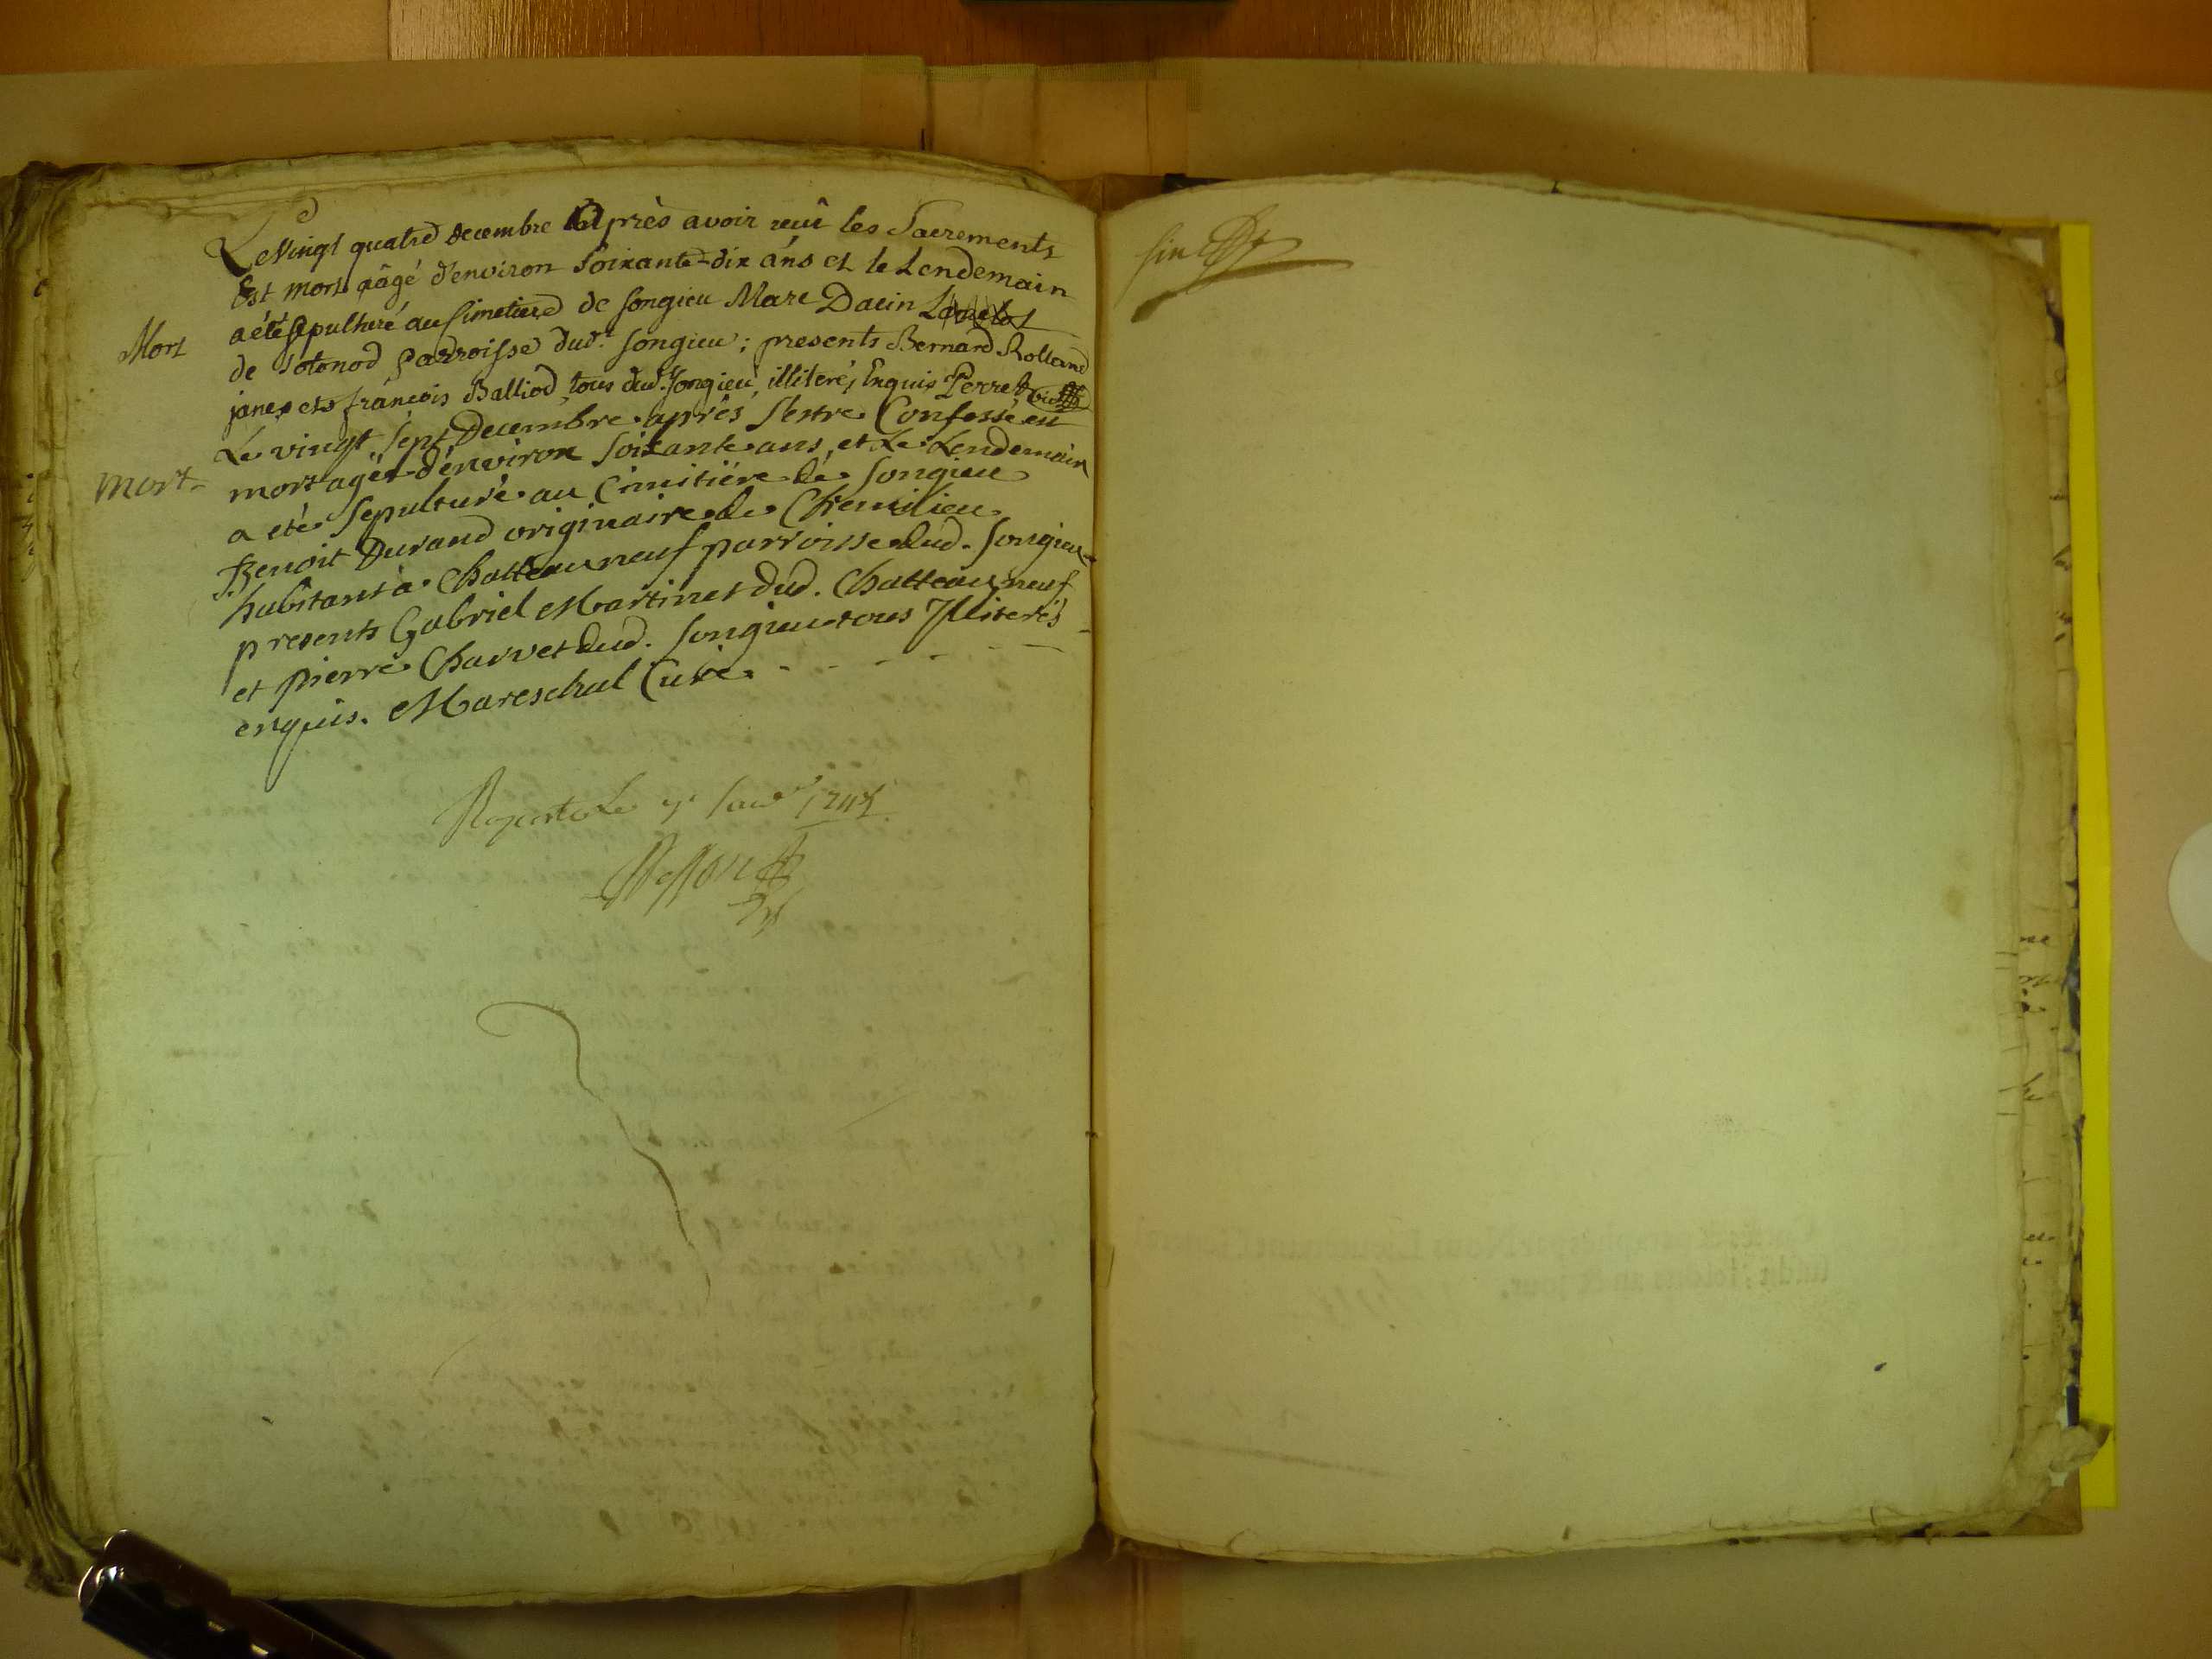 Le Vingt quatre decembre Après avoir reçû les Sacrements
Est mort aâgé d'environ Soixante-dix ans et le Lendemain
Mort
a été sepulturé au Simetiere de Songieu Marc Dacin
de Sotonod parroisse dud.t Songieu; presents Bernard Rolland
janex et françois Balliod tous dud. Songieu illiterés Enquis Perret
Le vingt sept Decembre après s'estre Confessé est
Mort
mort agée d'environ soixante ans, et Le Lendemain
a eté sepulturé au Cimitiére de Songieu
Benoit Durand originaire de Chemilieu
habitant à Chatteauneuf parroisse dud. Songieu
presents Gabriel Martinet dud. Chatteauneuf
et pierre Charvet dud. Songieu tous Illiterés
enquis. Mareschal Curé.
Raporté Le 7e 1745
fin